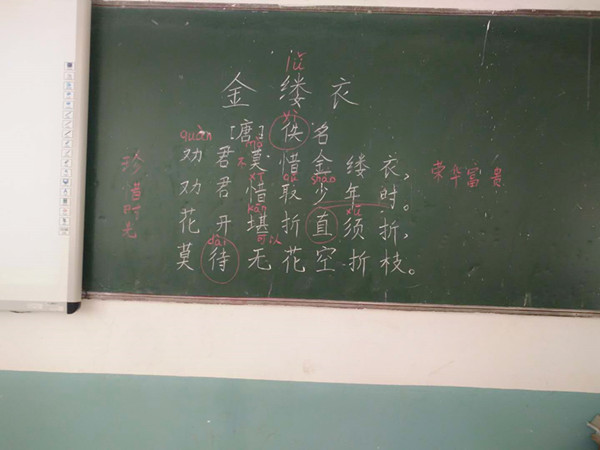 lǚ
金缕衣
yì
[唐]佚名
quàn mò
劝君莫惜金缕衣,
不
xī qǔ shào
劝君惜取少年时。
kān xū
花开堪折直须折,
dài 可以
莫待无花空折枝。
珍惜时光
荣华富贵